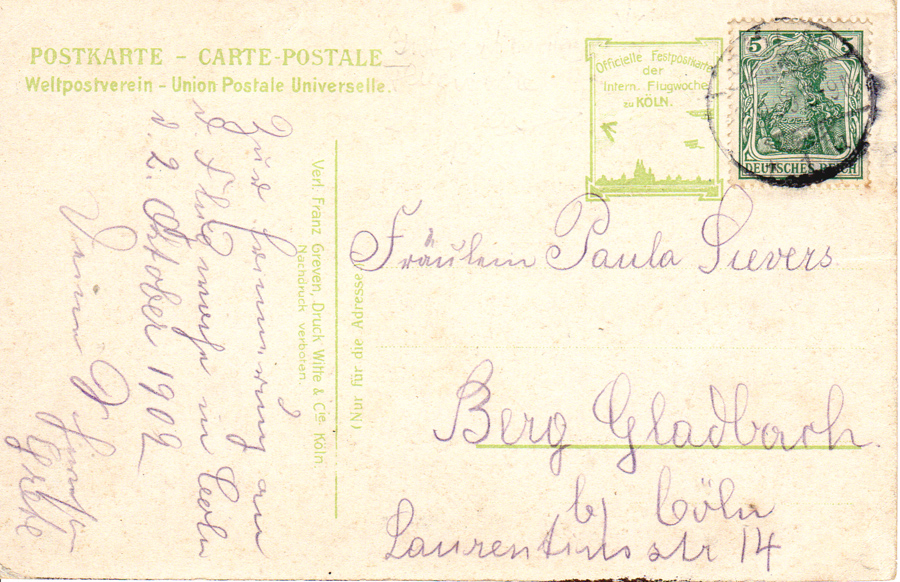 POSTKARTE – CARTE-POSTALE
Weltpostverein – Union Postale Universelle.
Officielle Festpostkarte
der
Intern. Flugwoche
zu KÖLN.
5
DEUTSCHES REICH
Zur Erinnerung an
d Flugwoche in Cöln
d. 2. Oktober 1909
Deine
Grete
Verl. Franz Greven, Druck Witte & Cie. Köln
Nachdruck verboten.
(Nur für die Adresse)
Fräulein Paula Sievers
Berg Gladbach.
b/ Cöln
Laurentiusstr 14